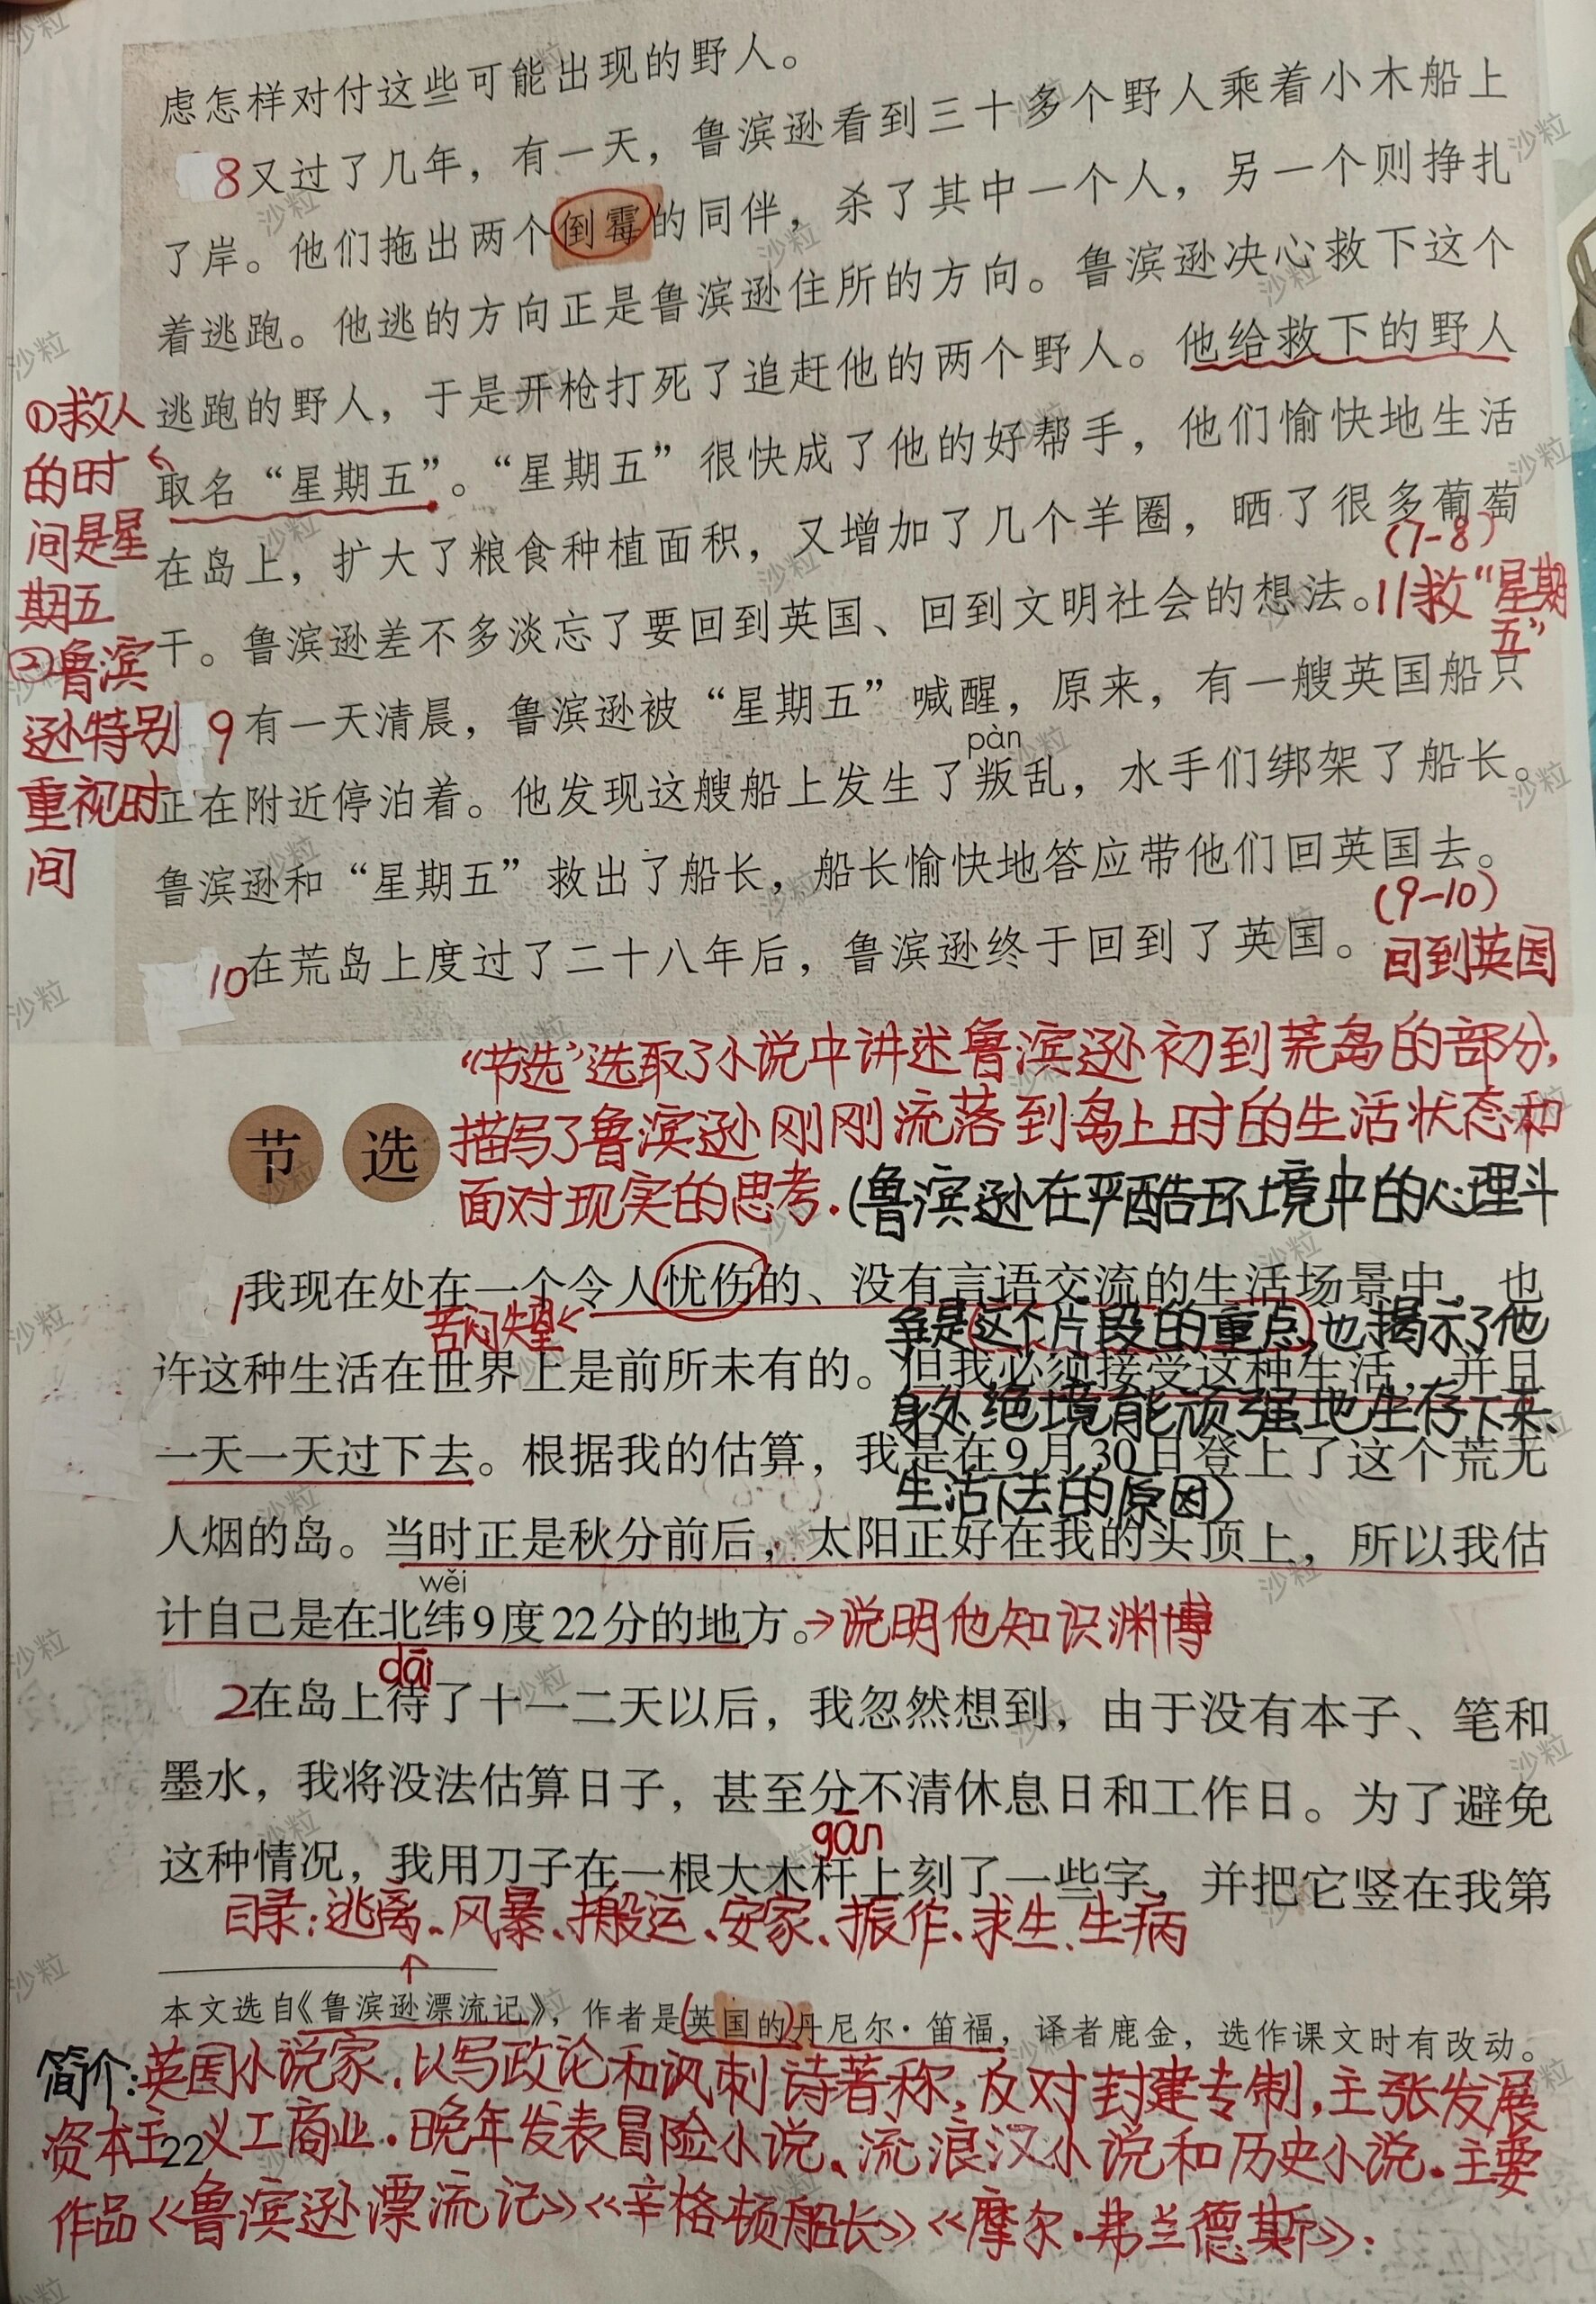 虑怎样对付这些可能出现的野人。
8又过了几年，有一天，鲁滨逊看到三十多个野人乘着小木船上
了岸。他们拖出两个倒霉的同伴，杀了其中一个人，另一个则挣扎
着逃跑。他逃的方向正是鲁滨逊住所的方向。鲁滨逊决心救下这个
逃跑的野人，于是开枪打死了追赶他的两个野人。他给救下的野人
取名“星期五”。“星期五”很快成了他的好帮手，他们愉快地生活
在岛上，扩大了粮食种植面积，又增加了几个羊圈，晒了很多葡萄
干。鲁滨逊差不多淡忘了要回到英国、回到文明社会的想法。
(7-8)
救“星期
五”
①救人
的时
间是星
期五
②鲁滨
逊特别
重视时
间
9有一天清晨，鲁滨逊被“星期五”喊醒，原来，有一艘英国船只
pàn
正在附近停泊着。他发现这艘船上发生了叛乱，水手们绑架了船长。
鲁滨逊和“星期五”救出了船长，船长愉快地答应带他们回英国去。
(9-10)
10在荒岛上度过了二十八年后，鲁滨逊终于回到了英国。
回到英国
“节选”选取了小说中讲述鲁滨逊初到荒岛的部分，
节选
描写了鲁滨逊刚刚流落到岛上时的生活状态和
面对现实的思考.(鲁滨逊在严酷环境中的心理斗
争是这个片段的重点,也揭示了他
身处绝境能顽强地生存下来、
生活下去的原因)
1我现在处在一个令人忧伤的、没有言语交流的生活场景中，也
苦闷失望
许这种生活在世界上是前所未有的。但我必须接受这种生活，并且
一天一天过下去。根据我的估算，我是在9月30日登上了这个荒无
人烟的岛。当时正是秋分前后，太阳正好在我的头顶上，所以我估
wěi
计自己是在北纬9度22分的地方。→说明他知识渊博
dāi
2在岛上待了十一二天以后，我忽然想到，由于没有本子、笔和
墨水，我将没法估算日子，甚至分不清休息日和工作日。为了避免
gān
这种情况，我用刀子在一根大木杆上刻了一些字，并把它竖在我第
目录:逃离、风暴、搬运、安家、振作、求生、生病
本文选自《鲁滨逊漂流记》，作者是(英国的)丹尼尔·笛福，译者鹿金，选作课文时有改动。
简介:英国小说家,以写政论和讽刺诗著称,反对封建专制,主张发展
资本主义工商业.晚年发表冒险小说、流浪汉小说和历史小说.主要
22
作品《鲁滨逊漂流记》《辛格顿船长》《摩尔·弗兰德斯》.
沙粒